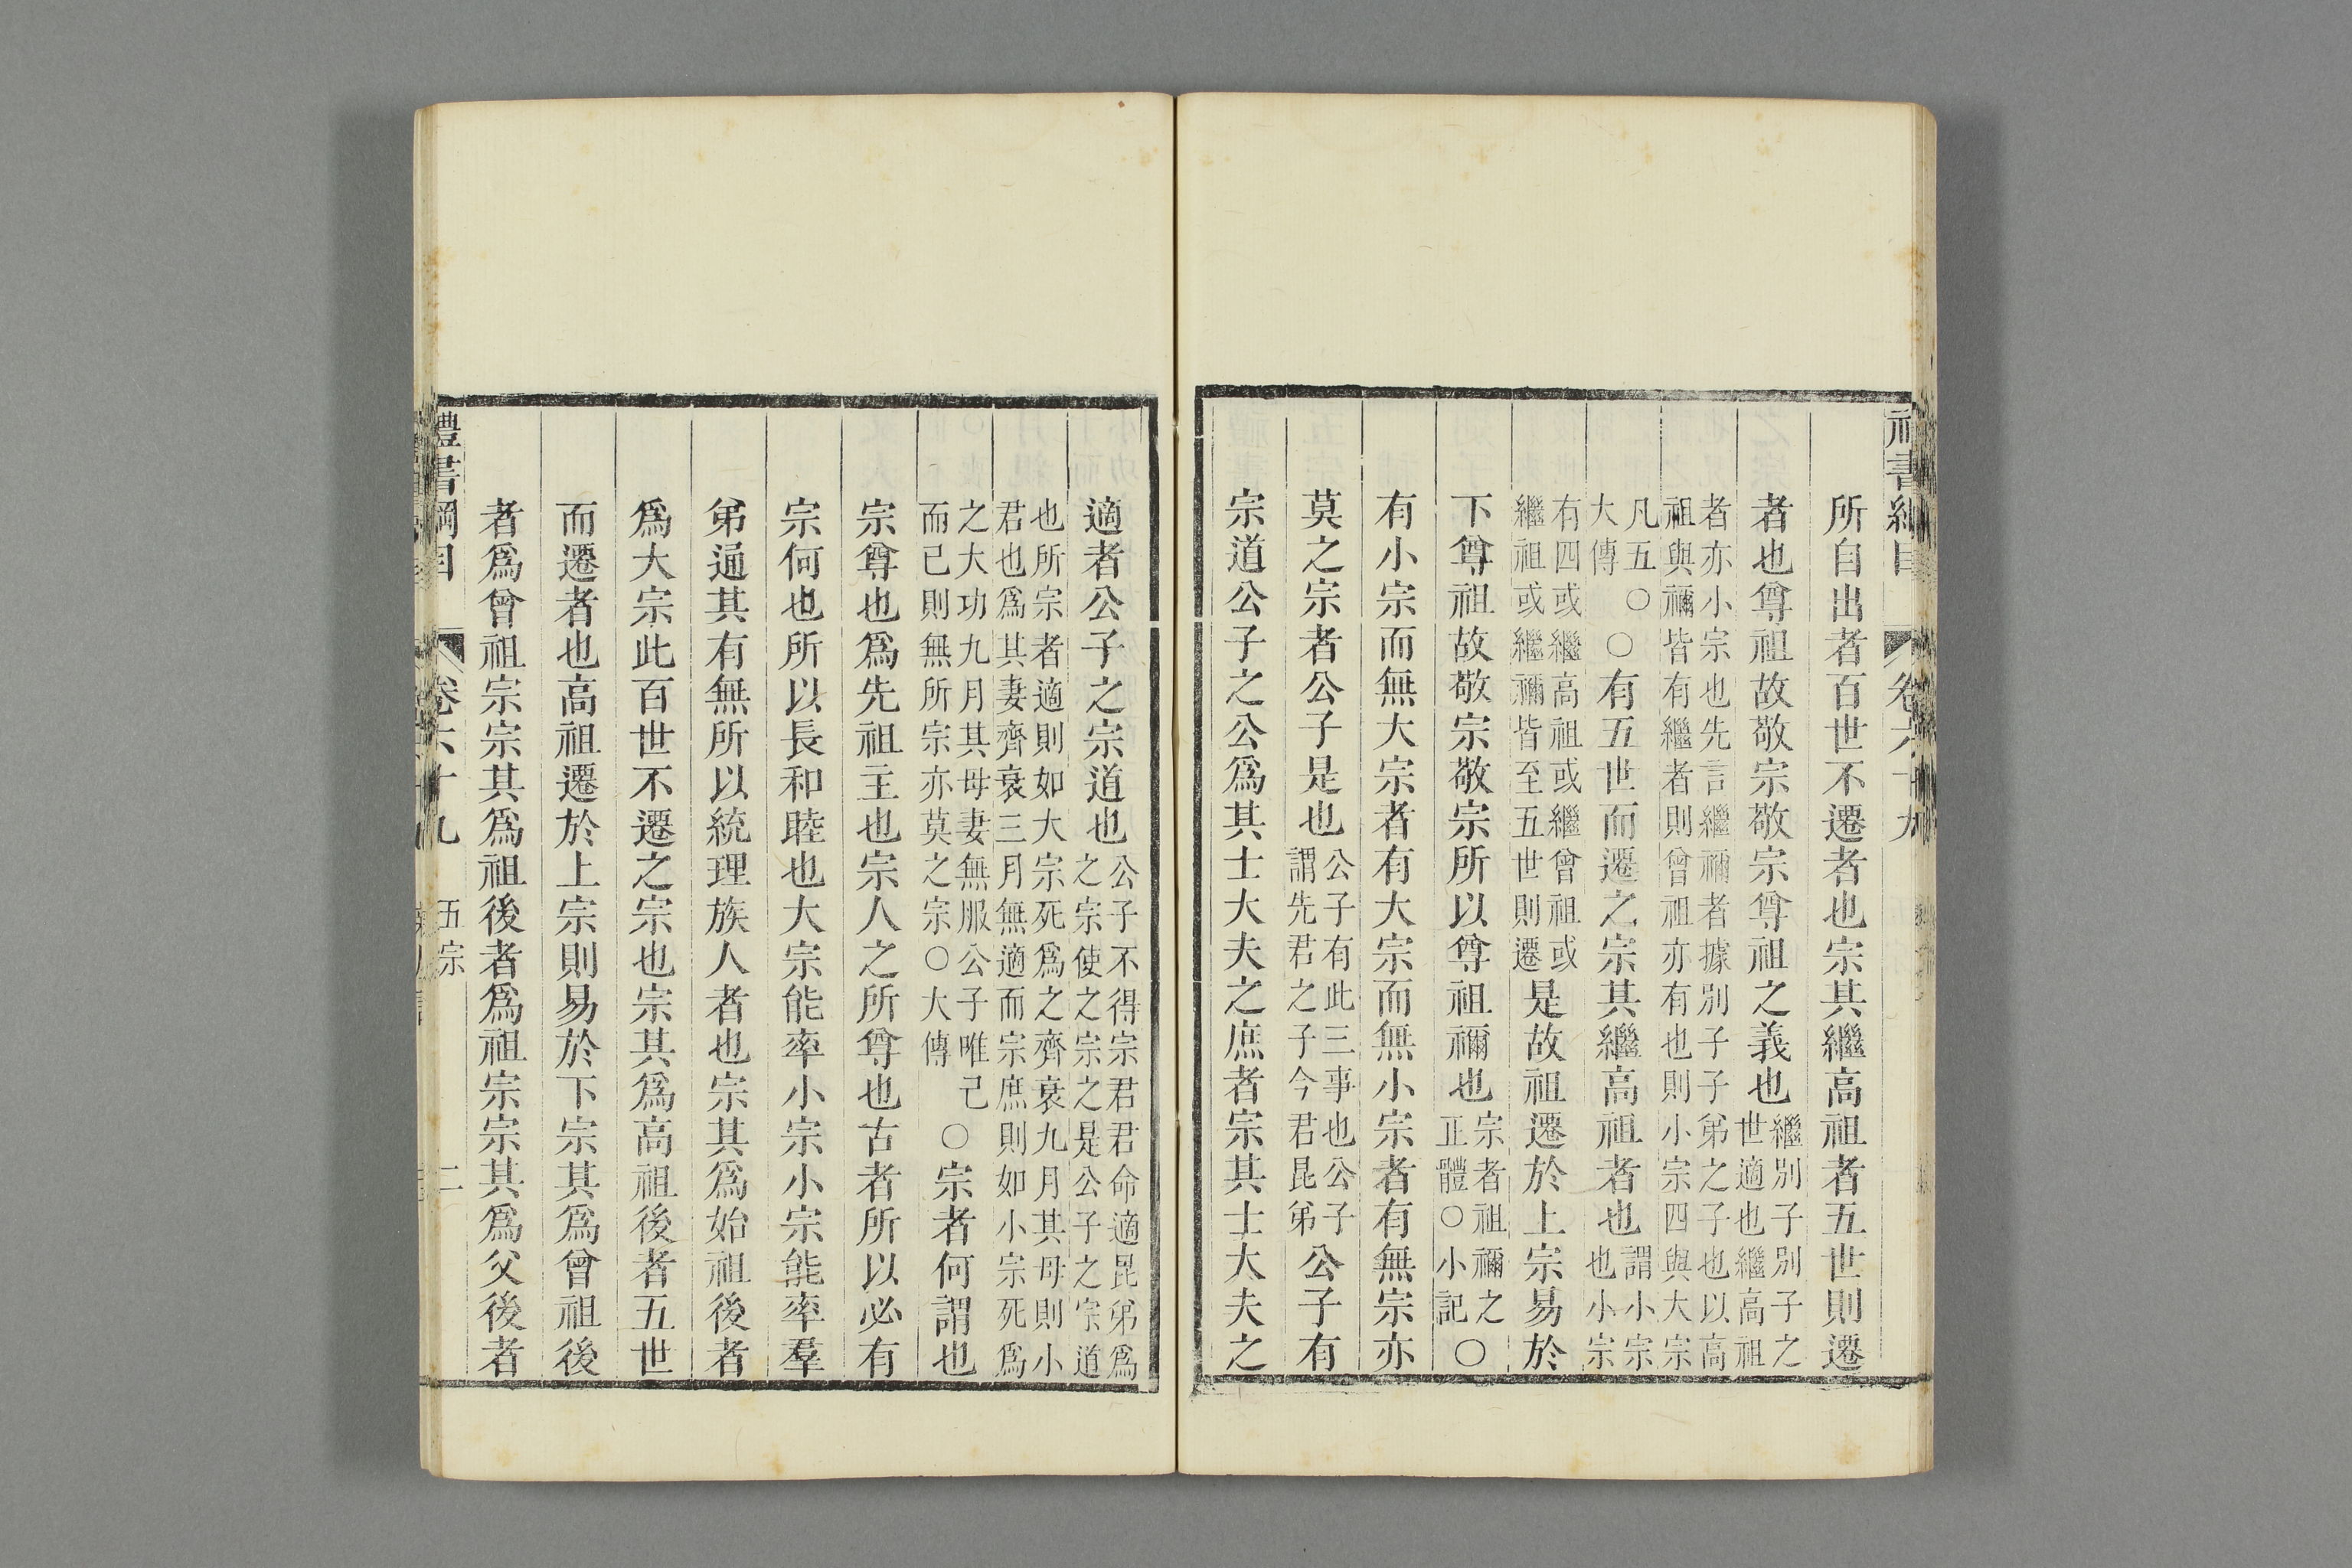 禮書綱目 卷六十九
所自出者百世不遷者也宗其繼高祖者五世則遷
者也尊祖故敬宗敬宗尊祖之義也繼別子別子之世適也繼高祖
者亦小宗也先言繼禰者據別子子弟之子也以高祖與禰皆有繼者則曾祖亦有也則小宗四與大宗
凡五○大傳○有五世而遷之宗其繼高祖者也謂小宗也小宗
有四或繼高祖或繼曾祖或繼祖或繼禰皆至五世則遷是故祖遷於上宗易於
下尊祖故敬宗敬宗所以尊祖禰也宗者祖禰之正體○小記○
有小宗而無大宗者有大宗而無小宗者有無宗亦
莫之宗者公子是也公子有此三事也公子謂先君之子今君昆弟公子有
宗道公子之公爲其士大夫之庶者宗其士大夫之
適者公子之宗道也公子不得宗君君命適昆弟爲之宗使之宗之是公子之宗道
也所宗者適則如大宗死爲之齊衰九月其母則小君也爲其妻齊衰三月無適而宗庶則如小宗死爲
之大功九月其母妻無服公子唯己而已則無所宗亦莫之宗○大傳○宗者何謂也
宗尊也爲先祖主也宗人之所尊也古者所以必有
宗何也所以長和睦也大宗能率小宗小宗能率羣
弟通其有無所以統理族人者也宗其爲始祖後者
爲大宗此百世不遷之宗也宗其爲高祖後者五世
而遷者也高祖遷於上宗則易於下宗其爲曾祖後
者爲曾祖宗宗其爲祖後者爲祖宗宗其爲父後者
禮書綱目 卷六十九 五宗 二